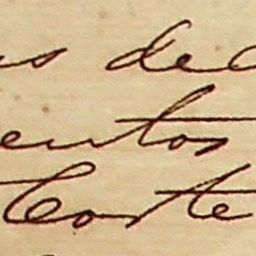 us de
entos
Corte